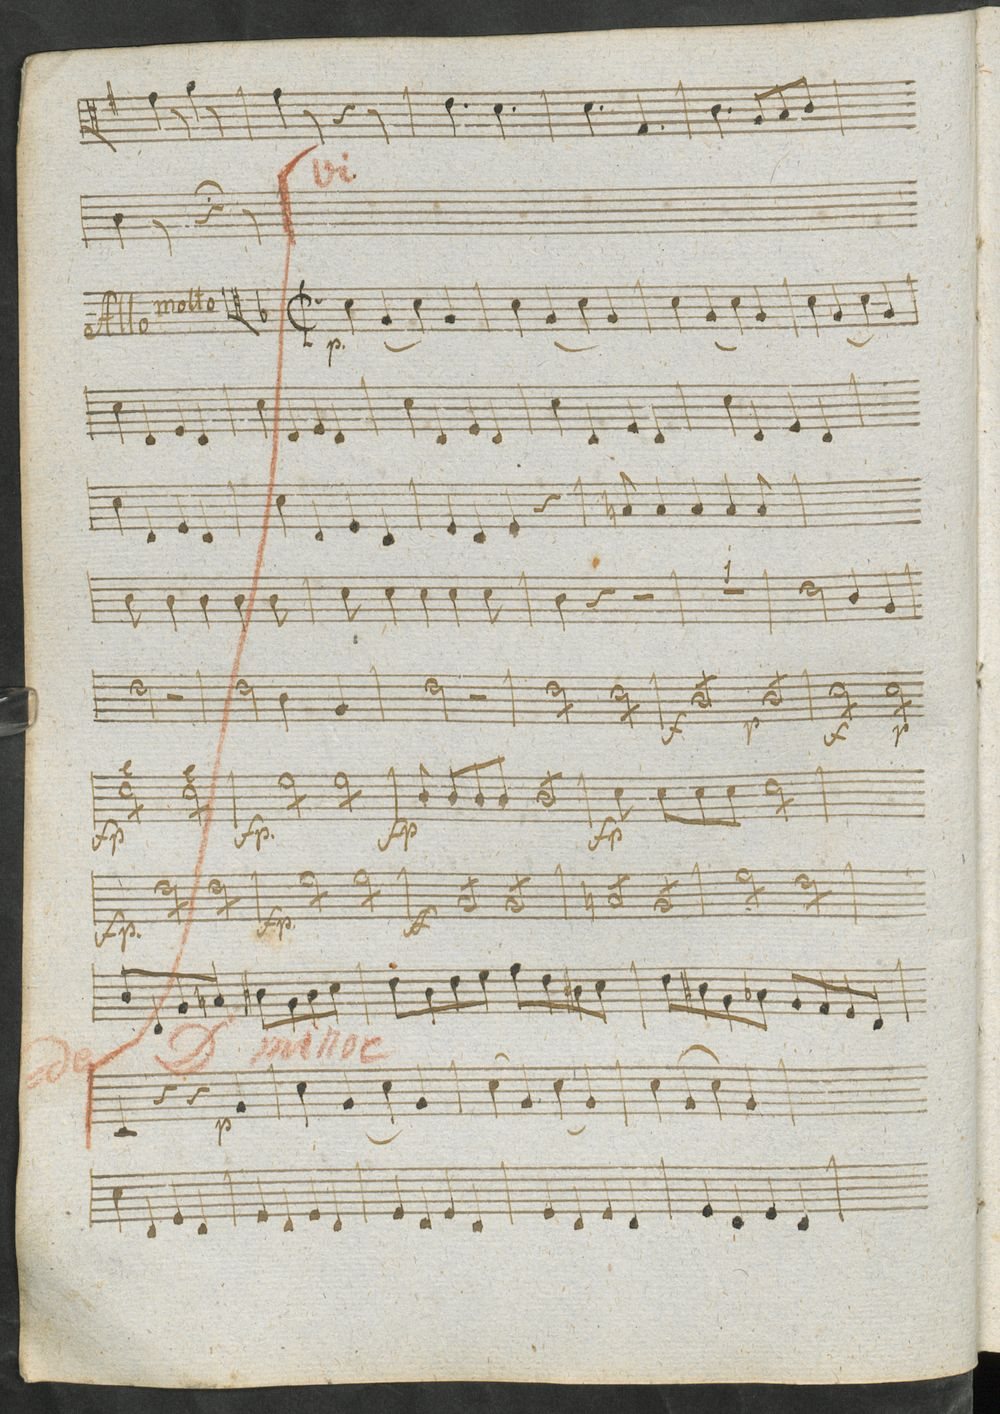 Vi
Allo molto
p.
1
f p f p
fp fp. fp fp
fp. fp. ff
de D minor
p